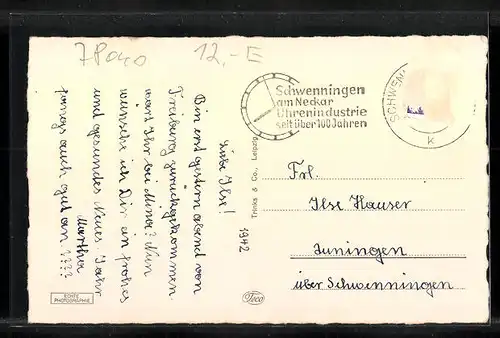 78040
12,-E
Schwenningen
am Neckar
Uhrenindustrie
seit über 100 Jahren
SCHWEN
K
Liebe Ilse!
Bin erst gestern abend von
Freiburg zurückgekommen.
wart Ihr bei Minna? Nun
wünsche ich Dir ein frohes
und gesundes Neues Jahr
auch gut an ????
Martha
1942
Trinks & Co., Leipzig
Trico
ECHTE
PHOTOGRAPHIE
Frl.
Ilse Hauser
Tuningen
über Schwenningen